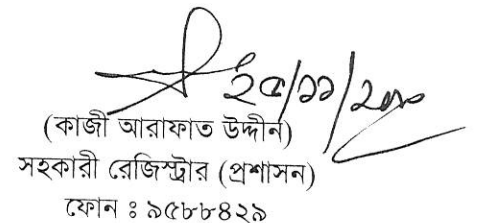 ২৫/১১/২০১০
(কাজী আরাফাত উদ্দীন)
সহকারী রেজিস্ট্রার (প্রশাসন)
ফোন ঃ ৯৫৮৮৪২৯